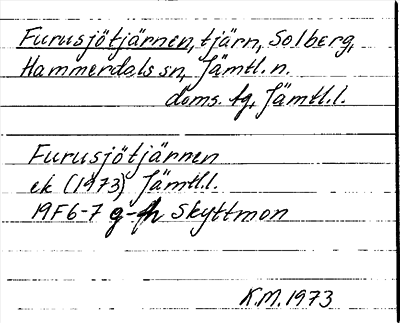 Furusjötjärnen, tjärn, Solberg,
Hammerdals sn, Jämtl. n.
doms. tg, Jämtl.l.
Furusjötjärnen
ek (1973) Jämtl.l.
19F6-7 g-h Skyttmon
K.M. 1973